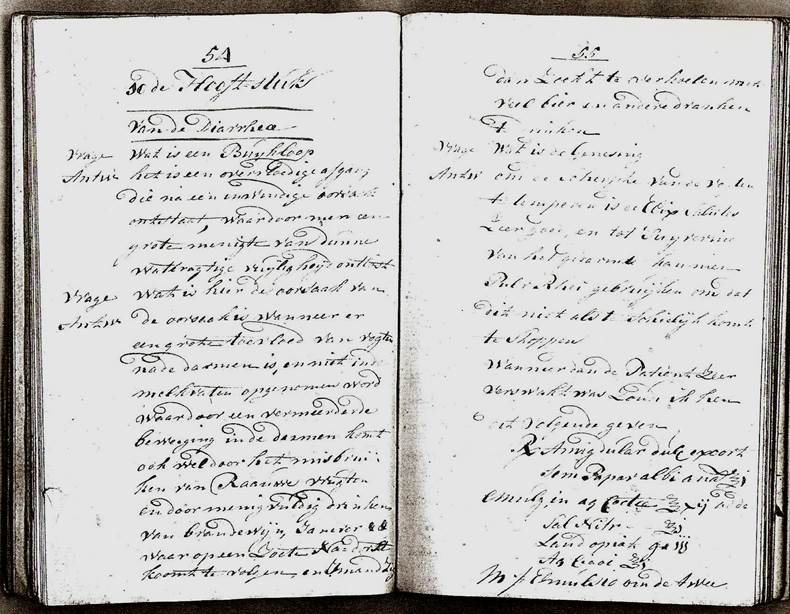 54
10de Hooft-stuk
Van de Diarrhea
Vrage Wat is een Buykloop
Antw: het is een overvloedige afgang
die na een inwendige oorsaak
ontstaat, waardoor men een
grote menigte van dunne
wateragtige vuyligheyt ontlast
Vrage Wat is hier de oorsaak van
Antw: de oorsaak is wanneer er
een grote toevloed van vogten
na de darmen is, en niet in de
melkvaten opgenomen word
waardoor een vermeerderde
beweging in de darmen komt
ook wel door het misbruy-
ken van Raauwe vrugten
en door menigvuldig drinken
van brandewijn, Janever &&
waar op een Loete
komt te volgen, en
55
te verkoelen met
veel bier en andere dranken
drinken
Vrage Wat is de Genesing
Antw: om de scherpte van de
te temperen is de Elix
Zeer goed, en tot Suyvering
van het kan men
Pulv Rhei gebruyken om dat
dit niet als te schielijk komt
te stoppen
Wanneer dan de Patient Zeer
verswakt was Zoud ik hem
het volgende geven
Rx Amigdular dulc excort
Sem Papav albi ana ℥j
Emulg in aq ℥xij
Sal Nitr
Laud opiat g iij
Aq
M f Emulsio om de twee